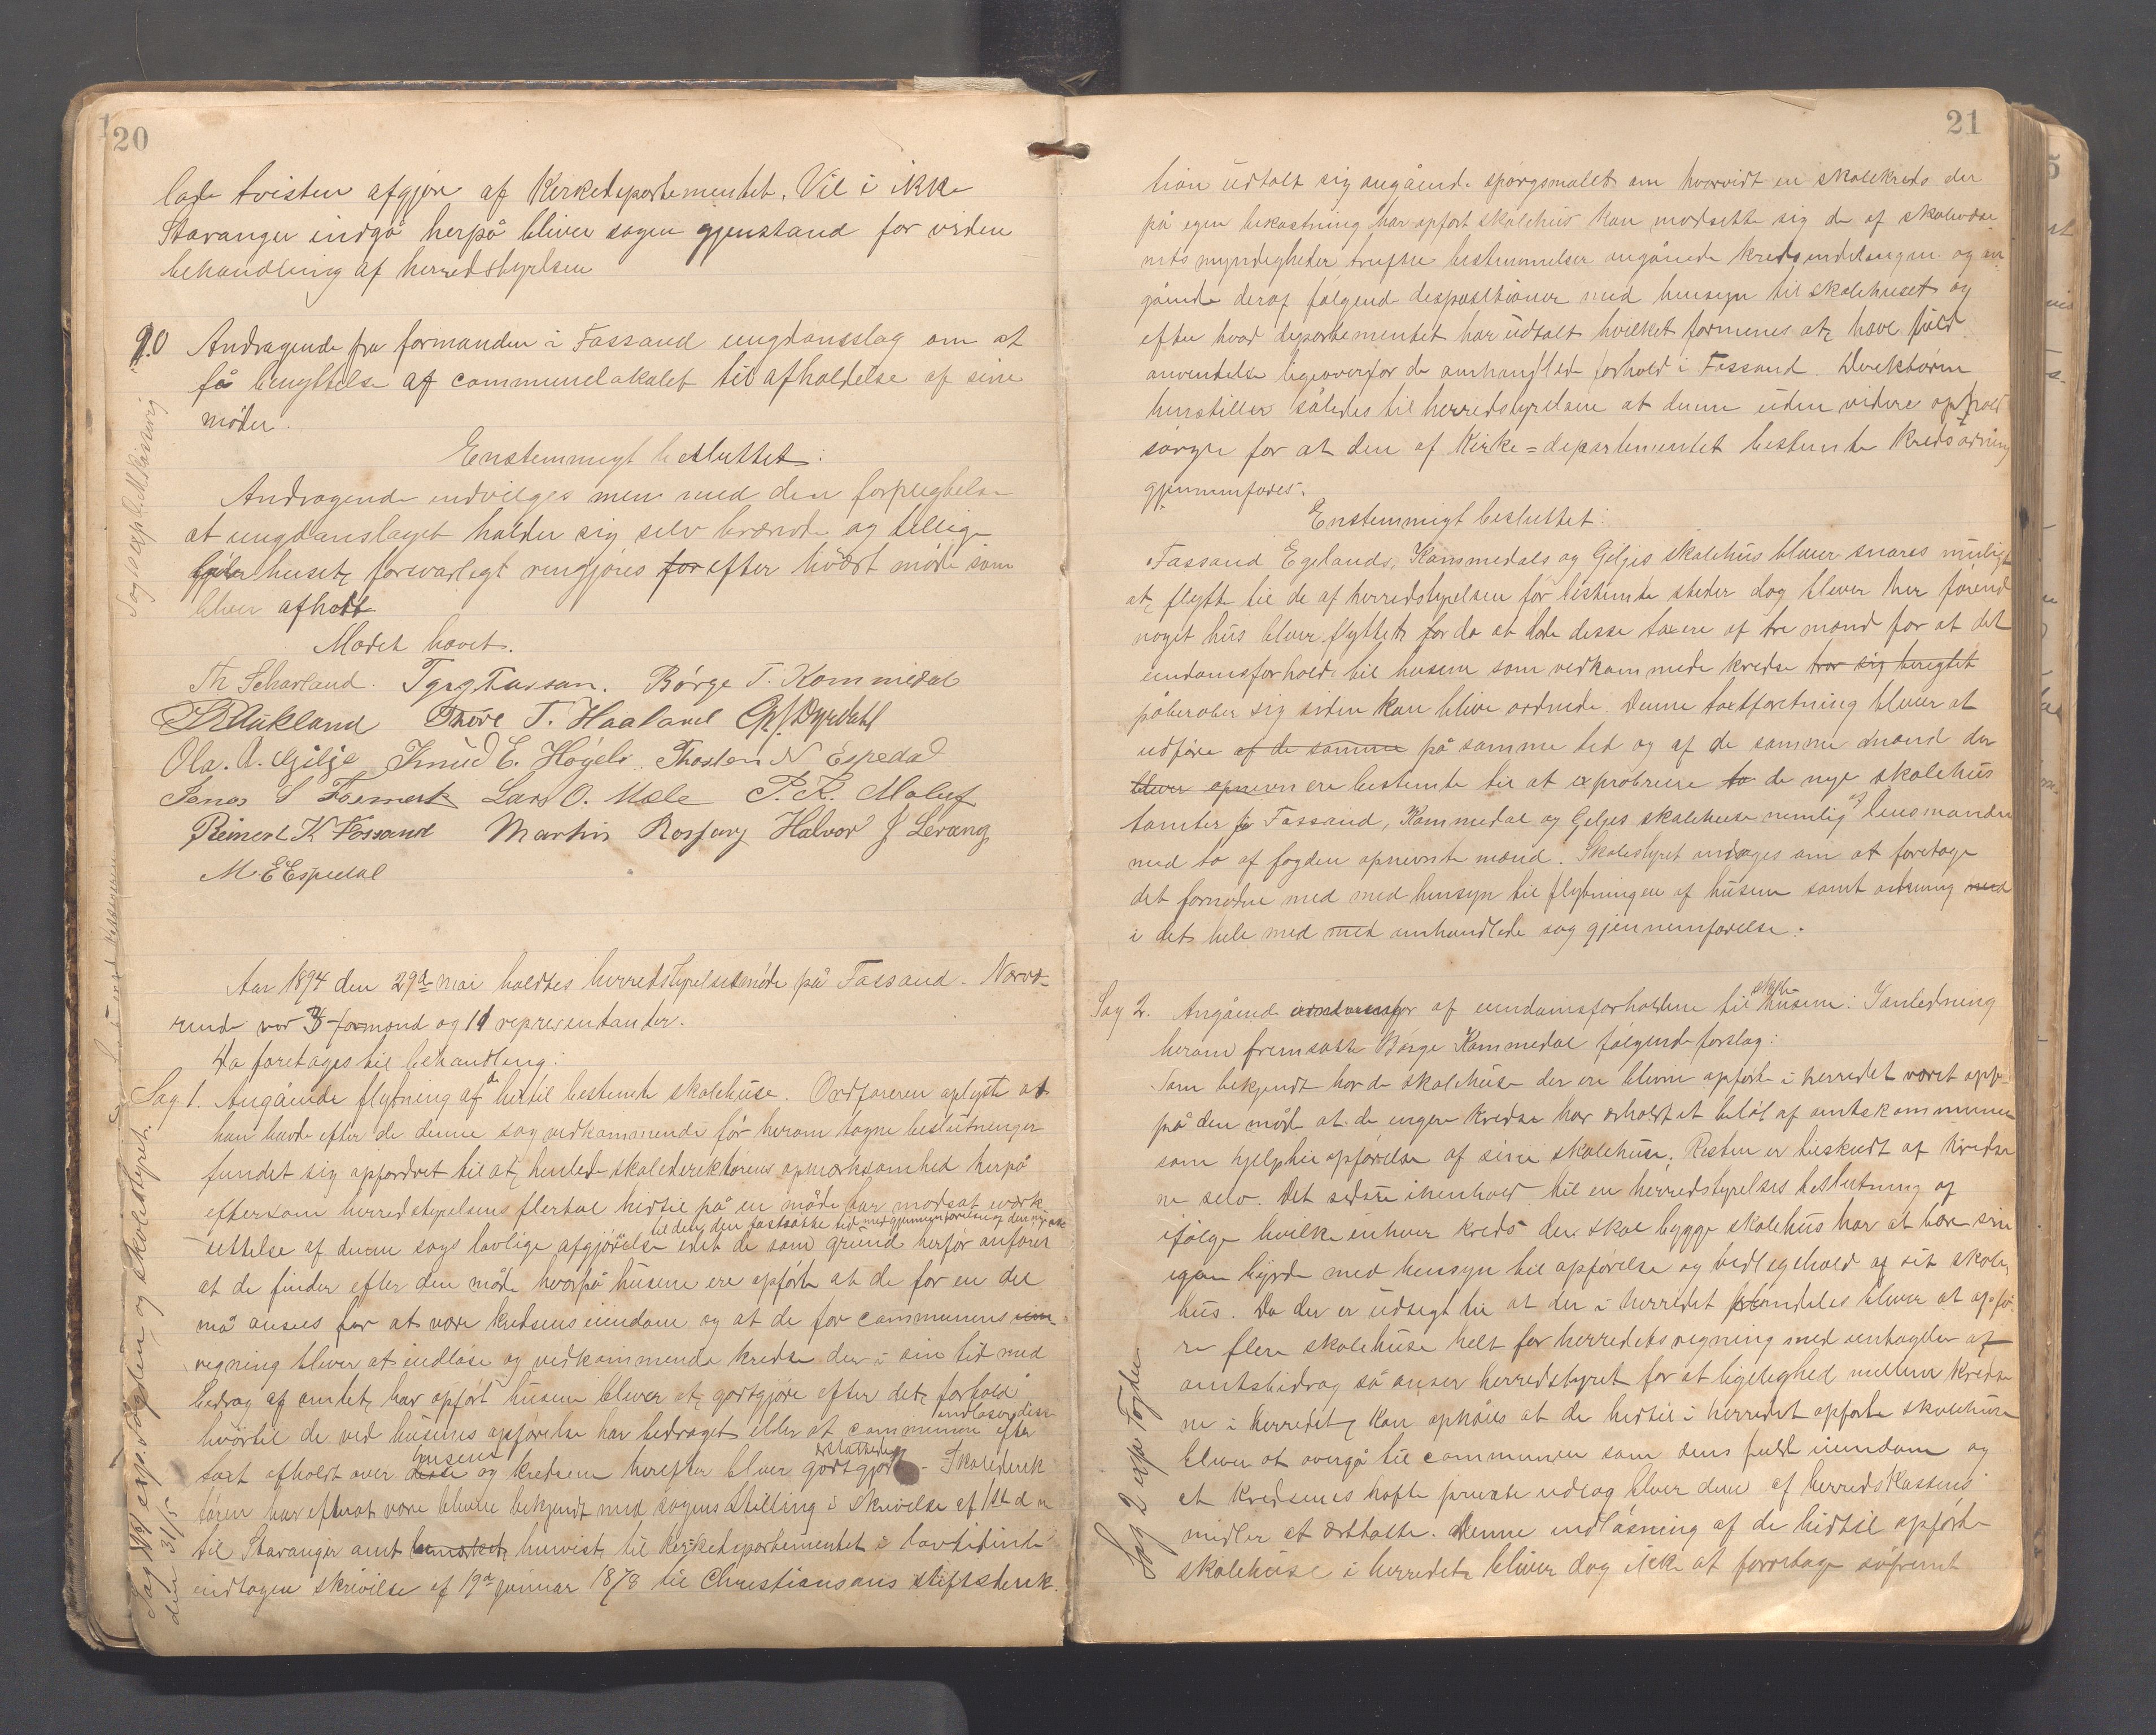 20
lade tvisten afgjøre af Kirkedepartementet. Vil i ikke
Stavanger indgå herpå bliver sagen gjenstand for viden
behandling af herredstyrelsen
90 Andragende fra formanden i Fossand ungdomsslag om at
få benyttelse af communelokalet til afholdelse af sine
møder.
Enstemmigt besluttet:
Andragende indvilges men med den forpligtelse
at ungdomslaget holder sig selv brænde og tillige
huset forsvarligt rengjøres for efter hvært møde som
bliver afholdt
Mødet hævet.
Th Scharland. Tørge T. Kommedal
Aukland Tnøre T. Haaland
Ola. A. Gilje Knud E. Høgeli Thosten N Espedal
Jonas S Lars O. Mæle P. K. Maluf
Reinert K Fossand Martin Rossavg Halvor J Levang
M. E Espedal
Aar 1894 den 29de mai holdtes herredstyrelsesmøde på Fossand. Nærvæ-
rende var 3 formænd og 11 representanter.
Da foretages til behandling:
Sag 1. Angående flytning af de hertil bestemte skolehuse. Ordføreren oplyste at
han havde efter de denne sag vedkommende før herom tagne beslutninger
fundet sig opfordret til at henlede skoledirektørens opmerksomhed herpå
eftersom herredstyrelsens flertal hidtil på en måde har modsat iværk-
settelse af denne sags lovlige afgjørelse idet de som grund herfor anfører
at de finder efter den måde hvorpå husene ere opførte at de for en del
må anses for at være kredsens eiendom og at de for communens
regning bliver at indløse og vedkommende kredse der i sin tid med
bidrag af amtet har opført husene bliver at godtgjøre efter det forhold
hvortil de ved husenes opførelse har bedraget eller at communen efter
indløser disse
taxt afholdt over husene og kredsene herefter bliver godtgjort. Skoledirek
tøren har efterat være bleven bekjendt med sagens stilling i skrivelse af 1st d. m
til Stavanger amt henvist til kirkedepartementet i lovtidende
indtagen skrivelse af 19de januar 1878 til Christiansans stiftsdirek.
Sag 1 exp. Fogden og skolestyret.
den 31/5
21
tion udtalt sig angående spørgsmålet om hvorvidt en skolekreds der
på egen bekostning har opført skolehus kan modsette sig de af skolevæse
nets myndigheder trufne bestemmelser angående kredsinddelingen og an
gående deraf følgende dispositioner med hensyn til skolehuset og
efter hvad departementet har udtalt hvilket formenes at have fuld
anvendelse ligeoverfor de omhandlede forhold i Fossand. Direktøren
henstiller således til herredstyrelsen at denne uden videre ophold
sørger for at den af Kirke=departementet bestemte kredsordning
gjennemføres.
Enstemmigt besluttet:
Fossand Egelands, Kommedals og Giljes skolehus bliver snares muligt
at flytte til de af herredstyrelsen før bestemte steder dog bliver her førend
noget hus bliver flyttet for da at lade desse taxere af tre mænd for at det
eiendomsforhold til husene som vedkommende kredse tror sig beregtet
påberober sig siden kan blive ordnede. Denne taxtforretning bliver at
udføre af de samme på samme tid og af de samme mænd der
bliver opnevn ere bestemte til at exprobriere to de nye skolehus
tomter for Fossand, Kommedal og Giljes skolehuse nemlig af lensmanden
med to af fogden opnevnte mænd. Skolestyret andrages om at foretage
det fornødne med med hensyn til flytningen af husene samt ordning med
i det hele med med omhandlede sag gjennemførelse.
Sag 2. Angående af eiendomsforholdene til skolehusene. I anledning
herom fremsatte Børge Kommedal følgende forslag:
Som bekjendt har de skolehuse der ere blevne opførte i herredet været opp-
på den måde at de engere kredse har erholdt et beløb af amtskommunen
som hjelp til opførelse af sine skolehuse. Resten er tilskudt af kredse
ne selv. Det sidste i henhold til en herredstyrelses beslutning og
ifølge hvilke enhver kreds der skal bygge skolehus har at bære sin
egen byrde med hensyn til opførelse og vedlegehold af sit skole
hus. Da der er udsegt til at der i herredet fremdeles bliver at opfø
re flere skolehuse helt for herredets regning med undtagelse af
amtsbidrag så anser herredstyret for at ligelighed mellem kredse
ne i herredet kan opnåes at de hidtil i herredet opførte skolehuse
bliver at overgå til communen som dens fulde eiendom og
at kredsenes hafte private udlæg bliver dem af herredskassens
midler at erstatte. Denne indløsning af de hidtil opførte
skolehuse i herredet bliver dog ikke at foretage såfremt
Sag 2 exp Fogden